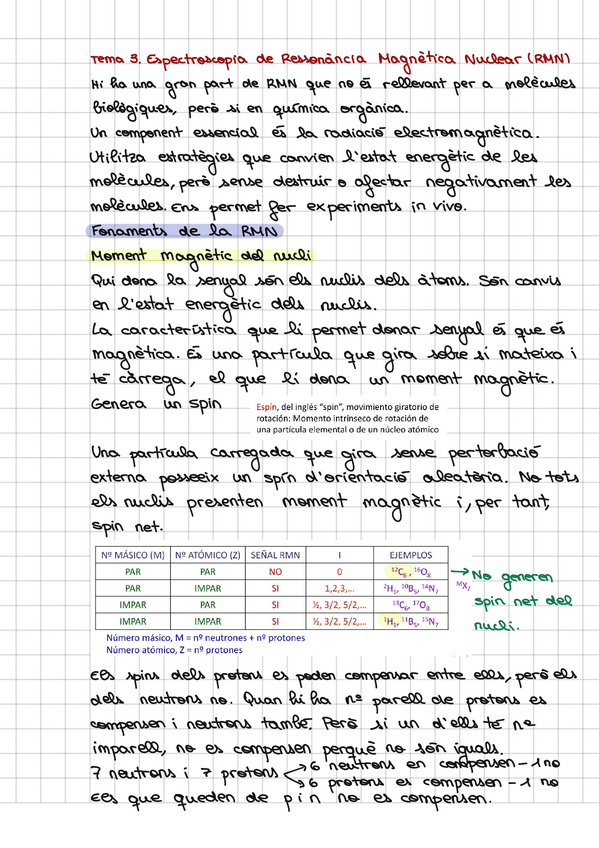 Tema 3. Espectroscopia de Ressonància Magnètica Nuclear (RMN)
Hi ha una gran part de RMN que no és rellevant per a molècules
biològiques, però si en química orgànica.
Un component essencial és la radiació electromagnètica.
Utilitza estratègies que canvien l'estat energètic de les
molècules, però sense destruir o afectar negativament les
molècules. Ens permet fer experiments in vivo.
Fonaments de la RMN
Moment magnètic del nucli
Qui dona la senyal són els nuclis dels àtoms. Són canvis
en l'estat energètic dels nuclis.
La característica que li permet donar senyal és que és
magnètica. És una partícula que gira sobre si mateixa i
té càrrega, el que li dona un moment magnètic.
Genera un spin
Espín, del inglés "spin", movimiento giratorio de
rotación: Momento intrínseco de rotación de
una partícula elemental o de un núcleo atómico
Una partícula carregada que gira sense pertorbació
externa posseeix un spín d'orientació aleatòria. No tots
els nuclis presenten moment magnètic i, per tant,
spin net.
Nº MÁSICO (M) Nº ATÓMICO (Z) SEÑAL RMN I EJEMPLOS
PAR PAR NO 0 ¹²C₆, ¹⁶O₈
PAR IMPAR SI 1,2,3,... ²H₁, ¹⁰B₅, ¹⁴N₇
IMPAR PAR SI ½, 3/2, 5/2,... ¹³C₆, ¹⁷O₈
IMPAR IMPAR SI ½, 3/2, 5/2,... ¹H₁, ¹¹B₅, ¹⁵N₇
ᴹX₂
→ No generen
spin net del
nucli.
Número másico, M = nº neutrones + nº protones
Número atómico, Z = nº protones
Els spins dels protons es poden compensar entre ells, però els
dels neutrons no. Quan hi ha nº parell de protons es
compensen i neutrons també. Però si un d'ells té nº
imparell, no es compensen perquè no són iguals.
7 neutrons i 7 protons → 6 neutrons en compensen - 1 no
→ 6 protons es compensen - 1 no
Els que queden de p i n no es compensen.